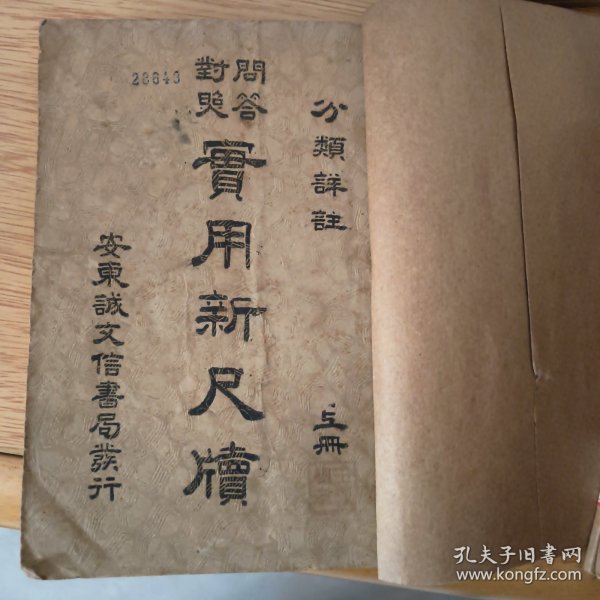 分類詳註
上冊
問答
對照
實用新尺牘
安東誠文信書局發行
28643
孔夫子旧书网
www.kongfz.com